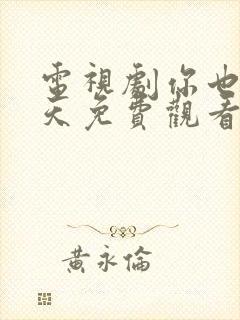 電視劇你也
天免費觀看
黃永倫